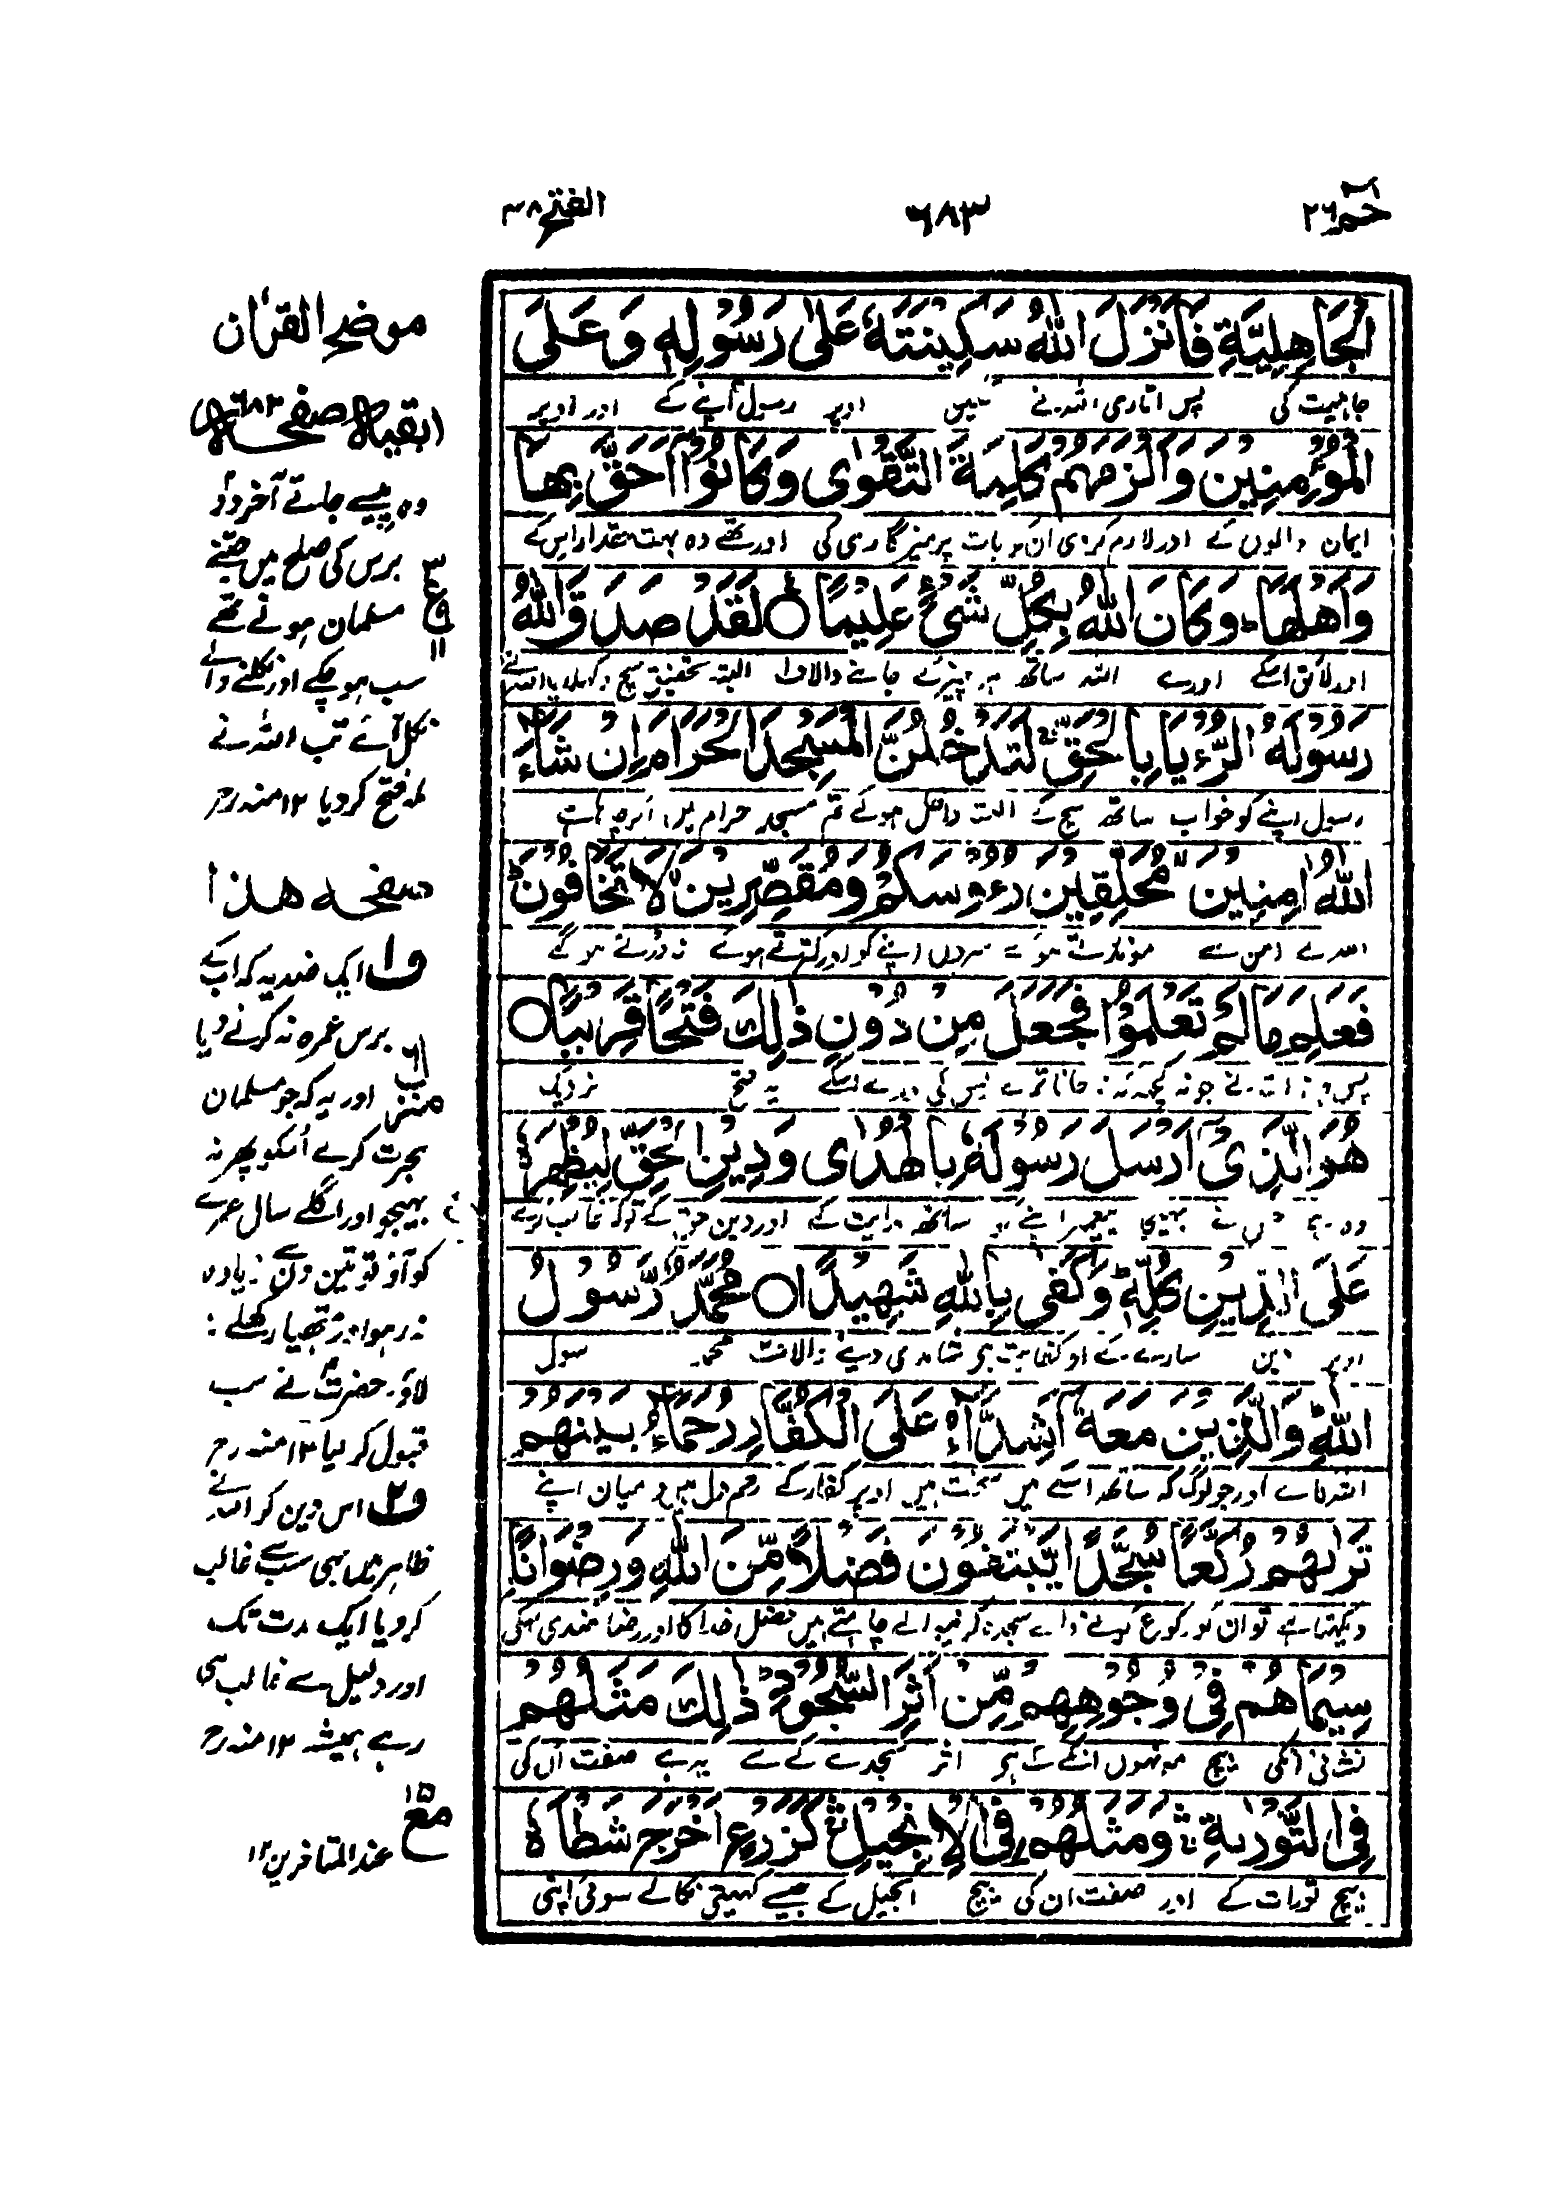 حٰمٓ ٢٦
٦٨٣
الفتح ٤٨
الْجَاهِلِيَّةِ فَاَنْزَلَ اللّٰهُ سَكِيْنَتَهٗ عَلٰى رَسُوْلِهٖ وَعَلَى
جاہلیت کی پس اتاری اللہ نے اوپر رسول اپنے کے اور اوپر
الْمُؤْمِنِيْنَ وَاَلْزَمَهُمْ كَلِمَةَ التَّقْوٰى وَكَانُوْٓا اَحَقَّ بِهَا
ایمان والوں کے اور لازم کردی ان کو بات پرہیزگاری کی اور تھے وہ بہت حقدار اس کے
وَاَهْلَهَا ؕ وَكَانَ اللّٰهُ بِكُلِّ شَیْءٍ عَلِيْمًا ○ لَقَدْ صَدَقَ اللّٰهُ
اور لائق اسکے اور ہے اللہ ساتھ ہر چیز کے جاننے والا ف۱ البتہ تحقیق سچ دکھلایا اللہ نے
رَسُوْلَهُ الرُّءْيَا بِالْحَقِّ ۚ لَتَدْخُلُنَّ الْمَسْجِدَ الْحَرَامَ اِنْ شَآءَ
رسول اپنے کو خواب ساتھ سچ کے البتہ داخل ہوگے تم مسجد حرام میں اگر چاہے
اللّٰهُ اٰمِنِيْنَ ۙ مُحَلِّقِيْنَ رُءُوْسَكُمْ وَمُقَصِّرِيْنَ ۙ لَا تَخَافُوْنَ ؕ
اللہ نے امن سے مونڈاتے ہوئے سروں اپنے کو اور کترتے ہوئے نہ ڈرتے ہوگے
فَعَلِمَ مَا لَمْ تَعْلَمُوْا فَجَعَلَ مِنْ دُوْنِ ذٰلِكَ فَتْحًا قَرِيْبًا ○
پس جانا اللہ نے جو نہ کچھ نہ جانا تم نے پس کی ورے اسکے یہ فتح نزدیک
هُوَ الَّذِیْٓ اَرْسَلَ رَسُوْلَهٗ بِالْهُدٰى وَدِيْنِ الْحَقِّ لِيُظْهِرَهٗ
وہ ہے جس نے بھیجا پیغمبر اپنے کو ساتھ ہدایت کے اور دین حق کے توکہ غالب کرے
عَلَى الدِّيْنِ كُلِّهٖ ؕ وَكَفٰى بِاللّٰهِ شَهِيْدًا ○ مُحَمَّدٌ رَّسُوْلُ
اوپر دین سارے کے اور کفایت ہے شاہدی دینے والا اللہ محمد رسول
اللّٰهِ ؕ وَالَّذِيْنَ مَعَهٗٓ اَشِدَّآءُ عَلَى الْكُفَّارِ رُحَمَآءُ بَيْنَهُمْ
اللہ کا ہے اور جو لوگ کہ ساتھ اسکے ہیں سخت ہیں اوپر کفار کے رحم دل ہیں درمیان اپنے
تَرٰىهُمْ رُكَّعًا سُجَّدًا يَّبْتَغُوْنَ فَضْلًا مِّنَ اللّٰهِ وَرِضْوَانًا ۫
دیکھتا ہے تو ان کو رکوع کرنے والے سجدہ کرنیوالے چاہتے ہیں فضل خدا کا اور رضا مندی اسکی
سِيْمَاهُمْ فِیْ وُجُوْهِهِمْ مِّنْ اَثَرِ السُّجُوْدِ ؕ ذٰلِكَ مَثَلُهُمْ
نشانی انکی بیچ مونہوں انکے کے ہے اثر سجدے کے سے یہ ہے صفت ان کی
فِی التَّوْرٰىةِ ۛۚ وَمَثَلُهُمْ فِی الْاِنْجِيْلِ ۛۚ كَزَرْعٍ اَخْرَجَ شَطْاَهٗ
بیچ تورات کے اور صفت ان کی بیچ انجیل کے جیسے کھیتی نکالے سوئی اپنی
موضح القرآن
(بقیہ صفحہ ٦٨٣)
وہ پیسے جاتے آخر دو
برس کی صلح میں جتنے
مسلمان ہونے تھے
سب ہوچکے اور نکلنے والے
نکل آئے تب اللہ نے
مکہ فتح کردیا ١٢ منہ رح
صفحہ هذا
ف۱ ایک ضد یہ کہ اب کے
برس عمرہ نہ کرنے دیا
اور یہ کہ جو مسلمان
ہجرت کرے اُسکو پھر نہ
بھیجو اور اگلے سال عمرے
کو آؤ تو تین دن سے زیادہ
نہ رہو اور ہتھیار کھلے نہ
لاؤ۔ حضرتؐ نے سب
قبول کر لیا ١٢ منہ رح
ف۲ اس دین کو اللہ نے
ظاہر میں بھی سب سے غالب
کردیا ایک مدت تک
اور دلیل سے غالب ہی
رہے ہمیشہ ١٢ منہ رح
ع
١١
منزل
مع ١٥
عند المتاخرین ١٢